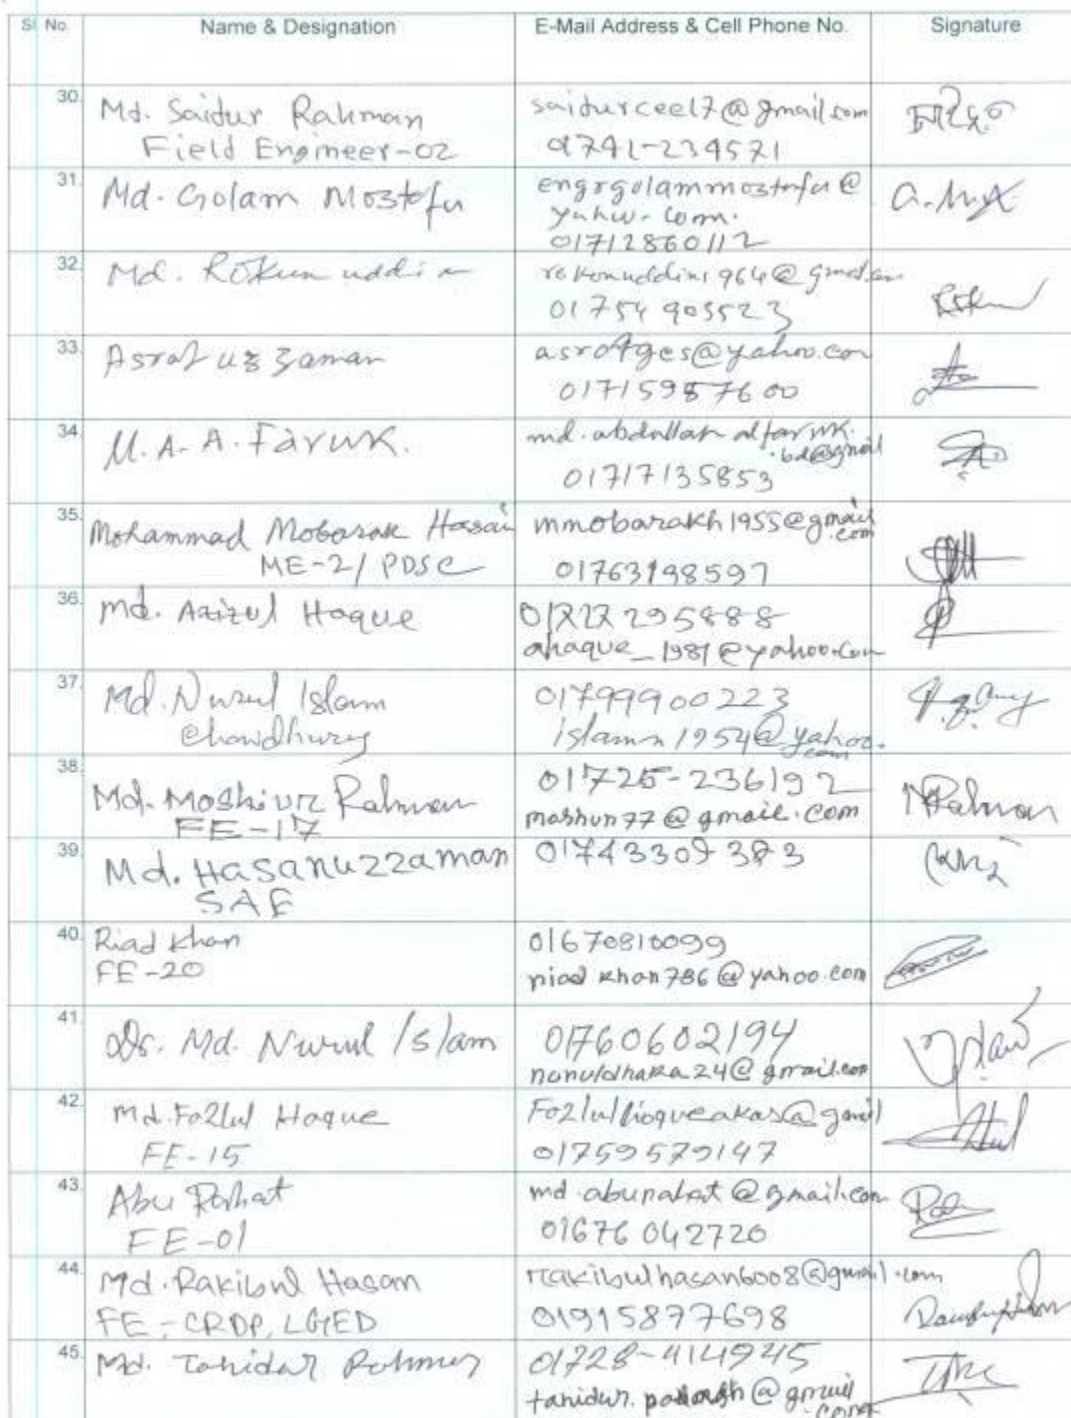 Sl No. Name & Designation E-Mail Address & Cell Phone No. Signature
30. Md. Saidur Rahman saidurceel7@gmail.com
Field Engineer-02 01741-234571
31. Md. Golam Mostofa engrgolammostofa@
yahoo.com.
01712860112
32. Md. Rokun uddin rokonuddin1964@gmail.com
01754 905523
33. Asraf uz zaman asrafges@yahoo.com
01715987600
34. M.A.A. Faruk. md.abdullah alfaruk.
bd@gmail
01717135853
35. Mohammad Mobarak Hosain mmobarakh1955@gmail
.com
ME-2/PDSC 01763198597
36. Md. Azizul Hoque 01727295888
ahaque_1981@yahoo.com
37. Md. Nurul Islam 01799900223
Chowdhury islamn1954@yahoo.
com
38. Md. Moshiur Rahman 01725-236192 MRahman
FE-17 moshun77@gmail.com
39. Md. Hasanuzzaman 01743309383
SAE
40. Riad Khan 01670810099
FE-20 riad khan786@yahoo.com
41. Dr. Md. Nurul Islam 01760602194
nuruldhaka24@gmail.com
42. Md. Fozlul Hoque Fozlulhoqueakas@gmail
FE-15 01759579147
43. Abu Rahat md.aburahat@gmail.com
FE-01 01676 042720
44. Md. Rakibul Hasan rakibulhasan6008@gmail.com
FE-CRDP, LGED 01915877698
45. Md. Tahidur Rahman 01728-414945
tahidur.@gmail
.com